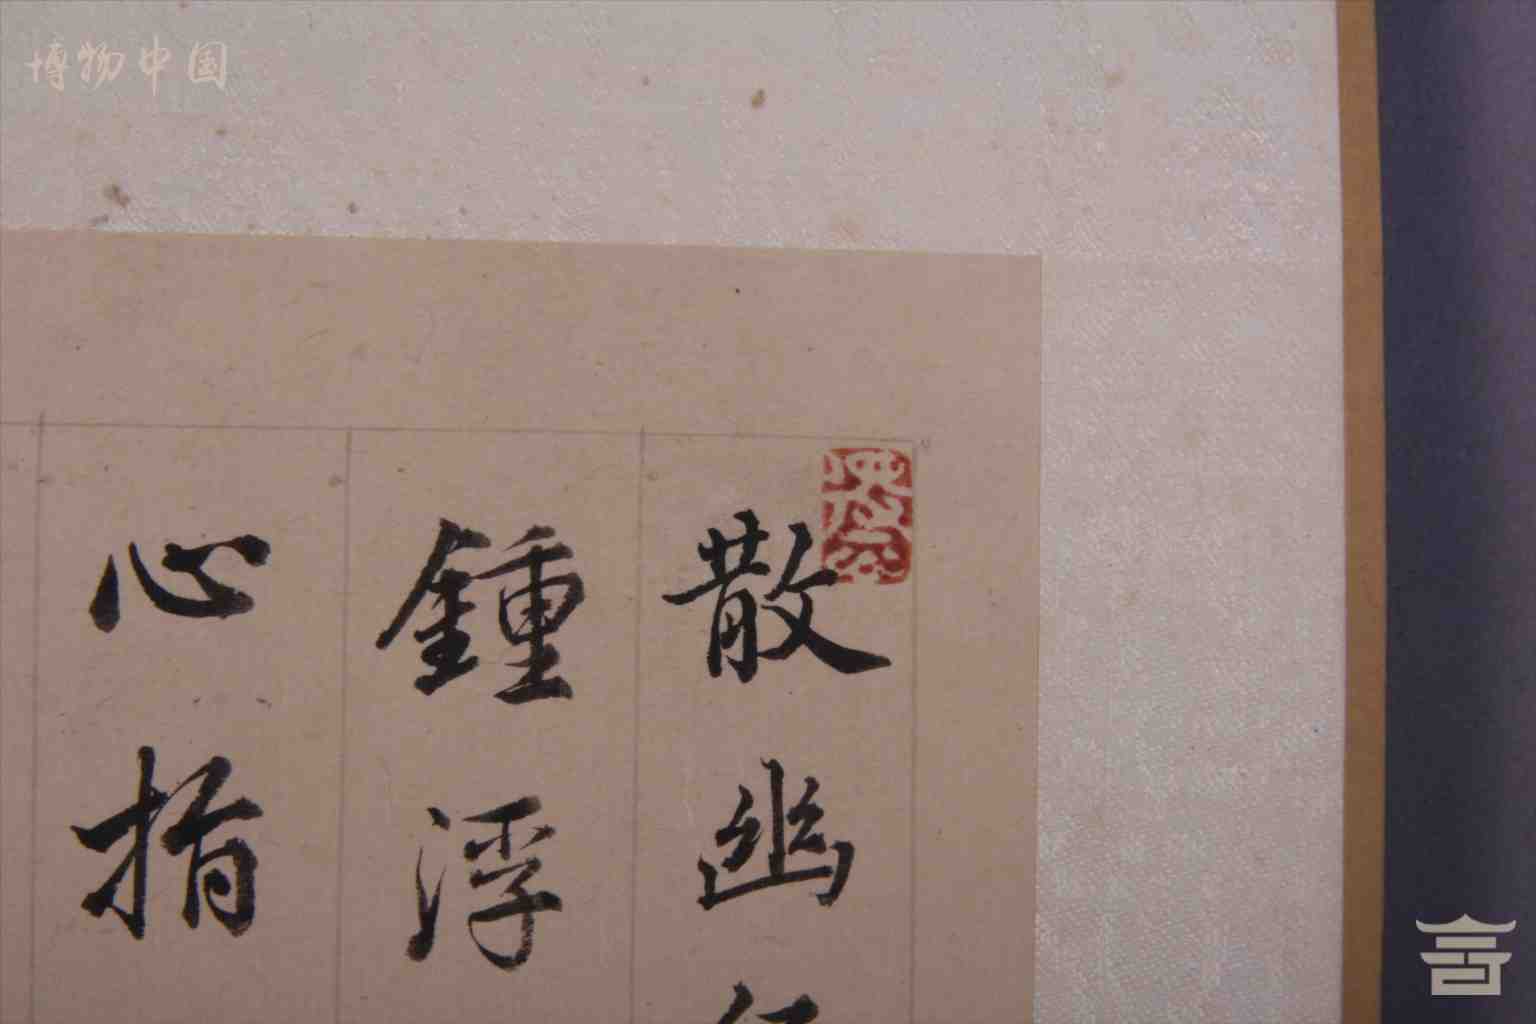 博物中国
散幽
鍾浮
心指